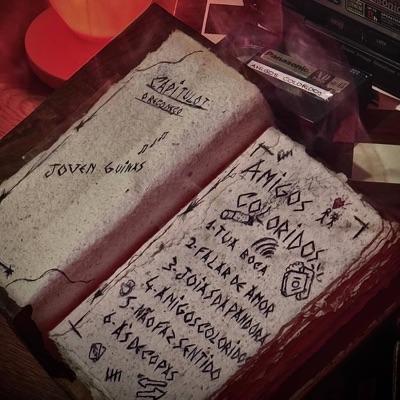 CAPÍTULO 1
O RECOMEÇO
JOVEM GUINAS
Panasonic
AMIGOS COLORIDOS
AMIGOS
COLORIDOS
1. TUA BOCA
2. FALAR DE AMOR
3. JOIAS DA PANDORA
4. AMIGOS COLORIDOS
5. NÃO FAZ SENTIDO
6. ÀS DE COPAS